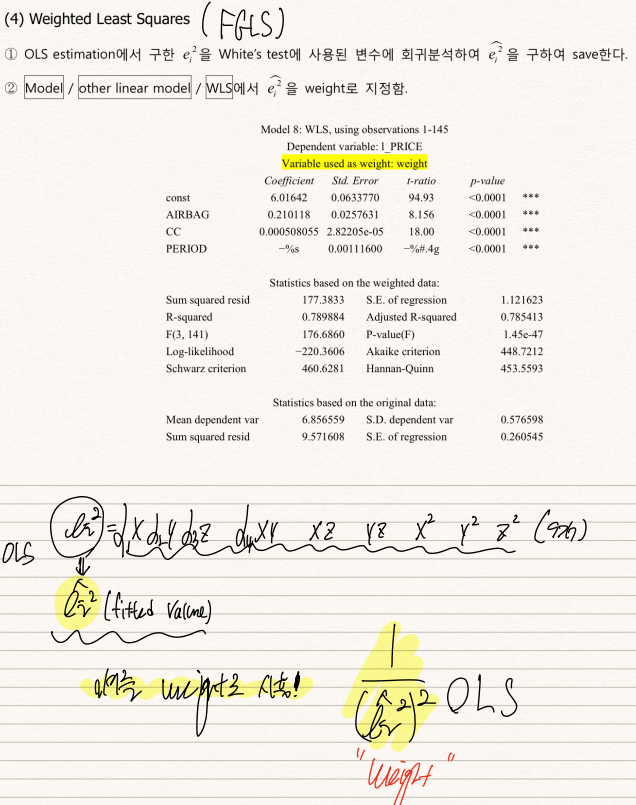 (4) Weighted Least Squares (FGLS)
① OLS estimation에서 구한 e_i^2을 White's test에 사용된 변수에 회귀분석하여 \hat{e_i^2}을 구하여 save한다.
② Model / other linear model / WLS에서 \hat{e_i^2}을 weight로 지정함.
Model 8: WLS, using observations 1-145
Dependent variable: l_PRICE
Variable used as weight: weight
Coefficient Std. Error t-ratio p-value
const 6.01642 0.0633770 94.93 <0.0001 ***
AIRBAG 0.210118 0.0257631 8.156 <0.0001 ***
CC 0.000508055 2.82205e-05 18.00 <0.0001 ***
PERIOD −%s 0.00111600 −%#.4g <0.0001 ***
Statistics based on the weighted data:
Sum squared resid 177.3833 S.E. of regression 1.121623
R-squared 0.789884 Adjusted R-squared 0.785413
F(3, 141) 176.6860 P-value(F) 1.45e-47
Log-likelihood −220.3606 Akaike criterion 448.7212
Schwarz criterion 460.6281 Hannan-Quinn 453.5593
Statistics based on the original data:
Mean dependent var 6.856559 S.D. dependent var 0.576598
Sum squared resid 9.571608 S.E. of regression 0.260545
OLS e_i^2 = d_1X d_2Y d_3Z d_4XY XZ YZ X^2 Y^2 Z^2
⇓
\hat{e_i}^2 (fitted value)
weight로 사용!
1
(\hat{e_i}^2)^2 OLS
"weight"